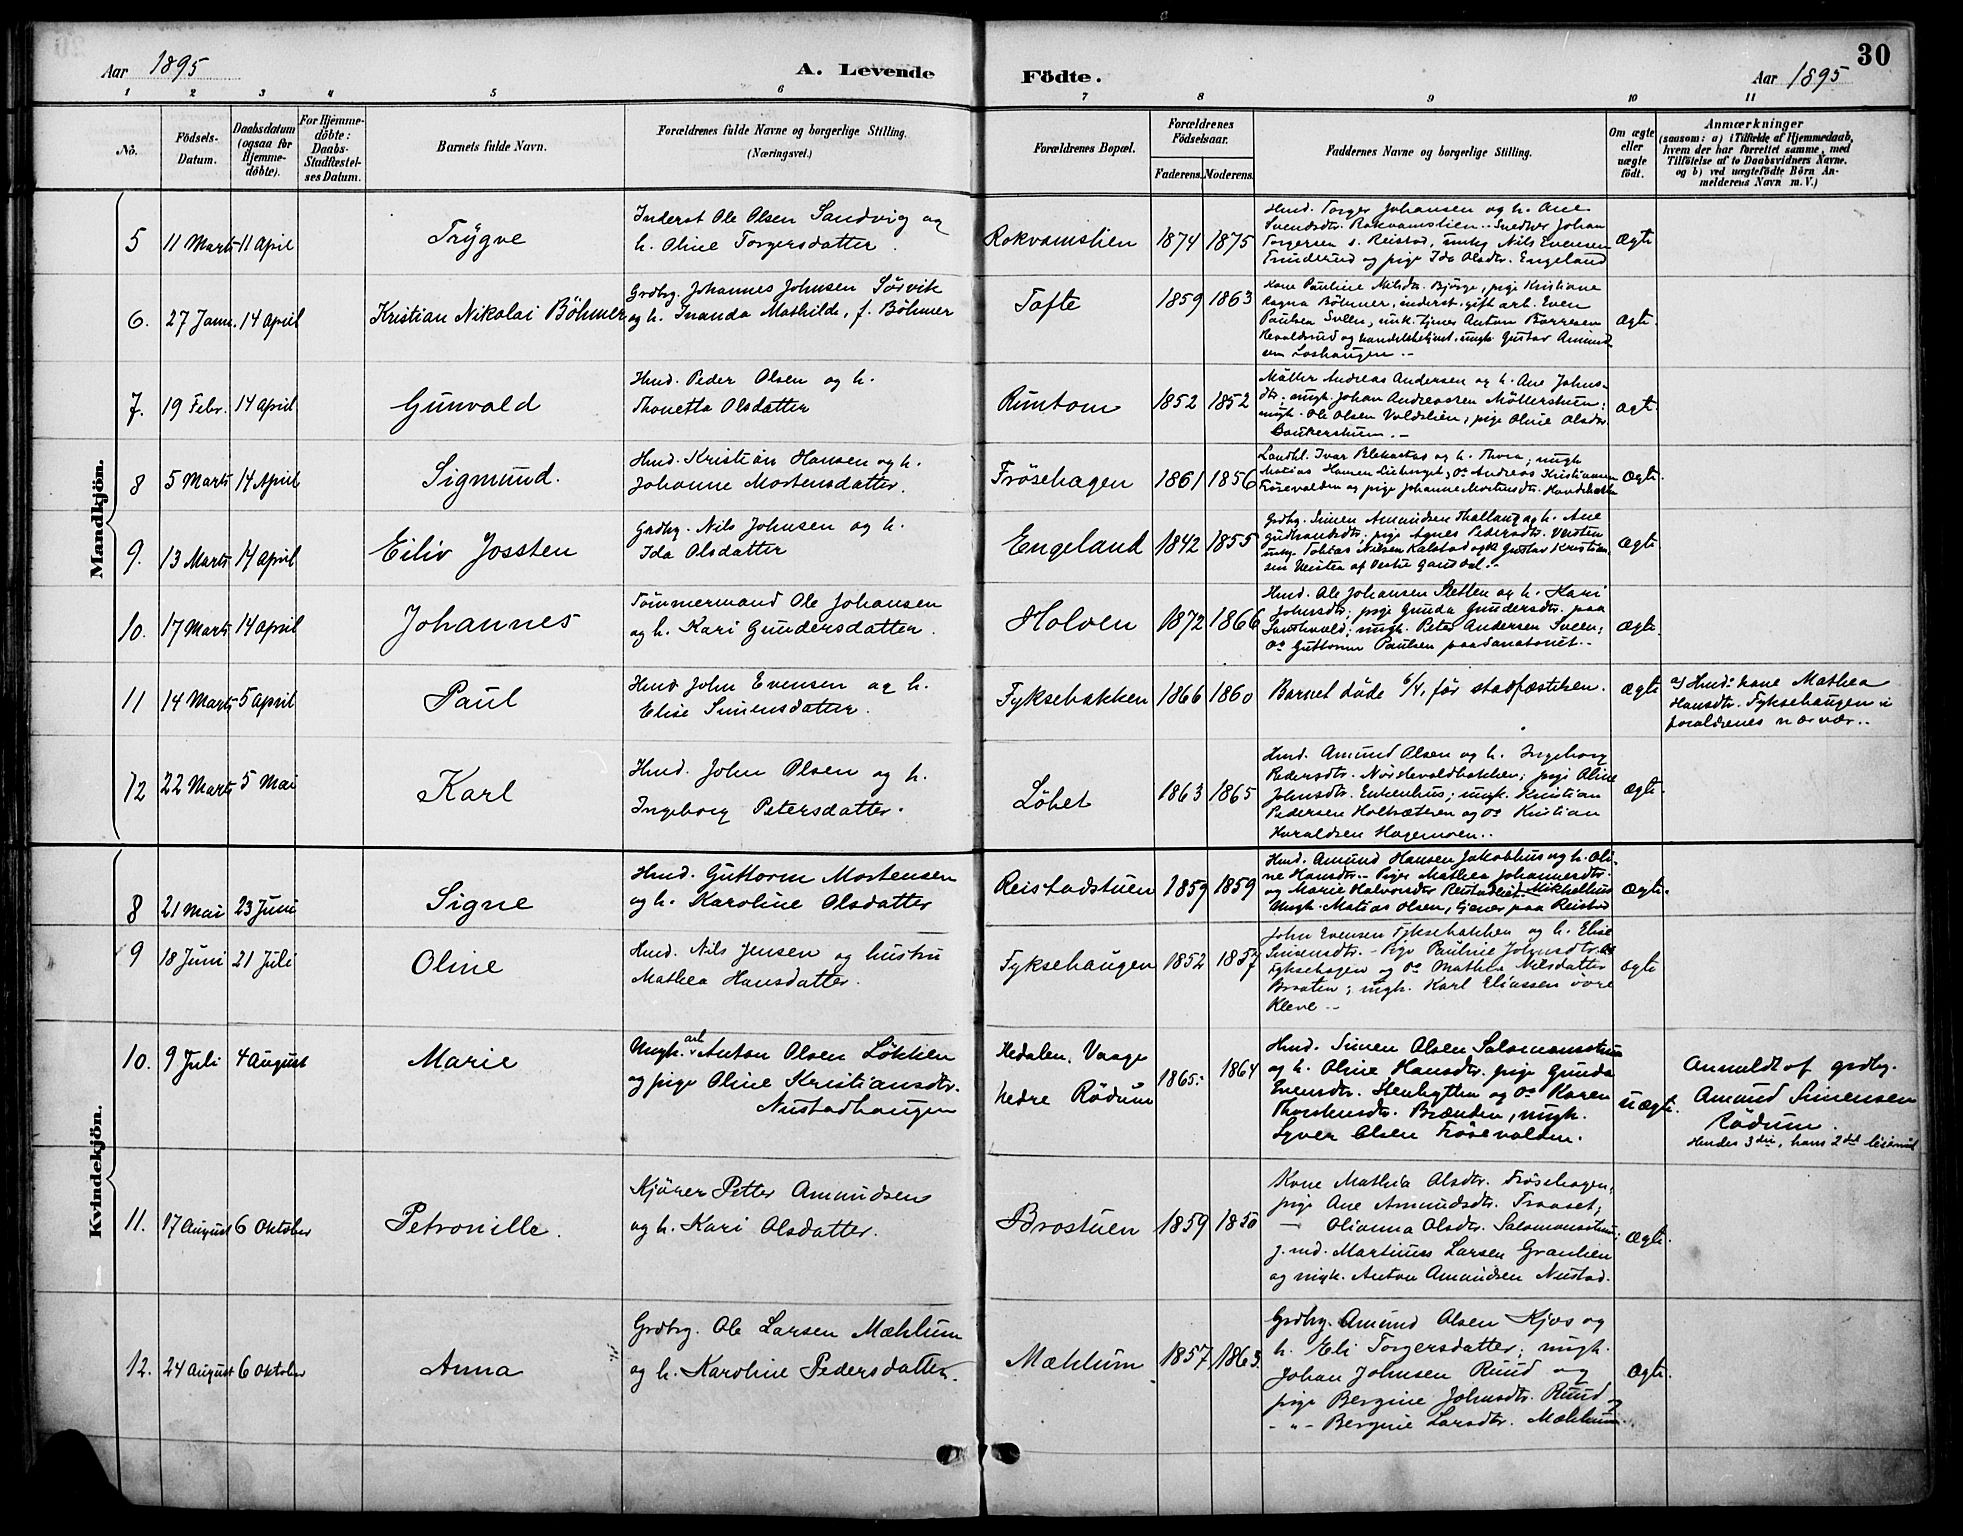 30
Aar 1895
A. Levende Födte.
Aar 1895
1 2 3 4 5 6 7 8 9 10 11
No.
Födsels-Datum.
Daabsdatum (ogsaa for Hjemme-döbte).
For Hjemme-döbte: Daabs-Stadfæstel-ses Datum.
Barnets fulde Navn.
Forældrenes fulde Navne og borgerlige Stilling.
(Næringsvei.)
Forældrenes Bopæl.
Forældrenes Födselsaar.
Faderens. Moderens.
Faddernes Navne og borgerlige Stilling.
Om ægte eller uægte födt.
Anmærkninger
(saasom: a) i Tilfælde af Hjemmedaab,
hvem der har forrettet samme, med
Tilföielse af to Daabsvidners Navne.
og b) ved uægtefödte Börn An-
melderens Navn m. V.)
Mandkjön.
5 11 Marts 11 April Trygve
Inderst Ole Olsen Sandvig og
h. Oline Torgersdatter.
Rokvamslien 1874 1875
Hmd. Torger Johansen og h. Ane
Svendsdtr. Rokvamslien. Snedker Johan
Torgersen s. Reistad, ungk Nils Evensen
og pige Ida Olsdtr. Engeland
Ægte
6. 27 Janr. 14 April Kristian Nikolai Böhmer
Grdbg. Johannes Johnsen Sörvik
og h. Inanda Mathilde, f. Böhmer
Tofte 1859 1863
Kone Pauline Nilsdtr. Bjørge, pige Kristiane
Ragna Böhmer, inderst, gift arb. Even
Paulsen Sveen, unk. tjener Anton Torresen
og handelsbetjent, ungk. Gustav Amund
sen Loshaugen.-
Ægte.
7. 19 Febr. 14 April Gunvald
Hmd. Peder Olsen og h.
Thonetta Olsdatter
Runtom 1852 1852
Möller Andreas Andersen og h. Ane Johns-
dtr, ungk. Johan Andreassen Möllerstuen;
ungk. Ole Olsen Voldslien, pige Oline Olsdtr.
Baukerstuen.-
Ægte.
8 5 Marts 14 April Sigmund.
Hmd. Kristian Hansen og h.
Johanne Mortensdatter.
Frösehagen 1861 1856
Landhl. Ivar Blekastad og h. Thora; ungk
Matias Hansen Lieberget, Do Andreas Kristiansen
Frösevolden og pige Johanne Mortensdtr.
Ægte.
9. 13 Marts 14 April Eiliv Jossten
Grdbg. Nils Johnsen og h.
Ida Olsdatter
Engeland 1842 1855
Grdbg. Simen Amundsen Thallaug og h. Ane
Gudbrandsdtr; pige Agnes Pedersdtr. Versten
ungk. Tobias Nilsen Kalstad og Do Gustav Kristian
sen Neisten af Vestre Gausdal.-
Ægte
10. 17 Marts 14 April Johannes
Tömmermand Ole Johansen
og h. Kari Gundersdatter.
Holven 1872 1866
Hmd. Ole Johansen Sletten og h. Kari
Johnsdtr. pige Gunda Gundersdtr. paa
ungk. Peter Andersen Sveen;
Do Guttorm Paulsen paa Sanatoriet.-
Ægte.
11 14 Marts 5 April Paul
Hmd John Evensen og h.
Elise Simensdatter.
Fyksebakken 1866 1860
Barnet döde 6/4, för stadfæstelsen.
Ægte
a) Hmd: kone Mathea
Hansdtr. Fyksehaugen i
forældrenes nærvær..
12 22 Marts 5 Mai Karl
Hmd. John Olsen og h.
Ingeborg Petersdatter.
Löket 1863 1865
Hmd. Amund Olsen og h. Ingeborg
Pedersdtr. Nordevoldbakken; pige Oline
Johnsdtr. Enkenhus; ungk. Kristian
Pedersen Holtsæteren og Do Kristian
Haraldsen Hagemoen..
Ægte.
Kvindekjön.
8 21 Mai 23 Juni Signe
Hmd. Guttorm Mortensen
og h. Karoline Olsdatter
Reistadstuen 1859 1859
Hmd. Amund Hansen Jakobhus og h. Oli-
ne Hansdtr.- Piger Mathea Johannesdtr.
og Marie Halvorsdtr Reistadeiet. Mikkelhus
Ungk. Matias Olsen, tjener paa Reistad
Ægte.
9 18 Juni 21 Juli Oline
Hmd. Nils Jensen og hustru
Mathea Hansdatter.
Fyksehaugen 1852 1857
John Evensen Fyksebakken og h. Elise
Simensdtr.- Pige Pauline Johnsdtr.
Fyksehagen og Do Mathea Nilsdatter
Braaten; ungk. Karl Eliassen övre
Kleve.-
Ægte
10. 9 Juli 4 August Marie
Ungk. arb. Anton Olsen Løkken
og pige Oline Kristiansdtr.
Nustadhaugen
Hedalen, Vaage
Nedre Rödum
1865. 1864
Hmd. Simen Olsen Salomonsstuen
og h. Oline Hansdtr. pige Gunda
Evensdtr. Stenhytten og Do Karen
Thorstensdtr. Brænden, ungk.
Syver Olsen Frösevolden.
Uægte.
Anmeldt af grdbg.
Amund Simensen
Rödum.
Hendes 3die, hans 2det leiermaal
11. 17 August 6 Oktober Petronille.
Kjörer Petter Amundsen
og h. Kari Olsdatter.
Brostuen 1859 1850
Kone Mathea Olsdtr. Frösehagen;
pige Ane Amundsdtr. Traaset;
— Olianna Olsdtr. Salomonsstuen;
g. md. Martinus Larsen Granlien
og ungk. Anton Amundsen Nustad.
Ægte.
12. 24 August 6 Oktober Anna
Grdbrg. Ole Larsen Mæhlum
og h. Karoline Pedersdatter.
Mæhlum 1857 1863.
Grdbg. Amund Olsen Kjos og
h. Eli Torgersdatter; ungk.
Johan Johnsen Ruud og
pige Bergine Johnsdtr. Ruud
- „ - Bergine Larsdtr. Mæhlum.
Ægte.